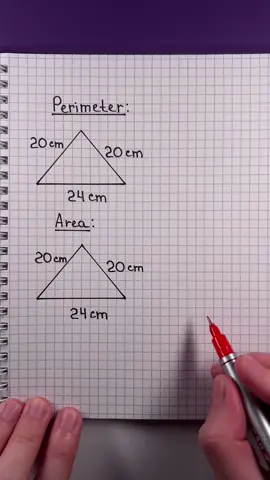 Perimeter:
20 cm
20 cm
24 cm
Area:
20 cm
20 cm
24 cm